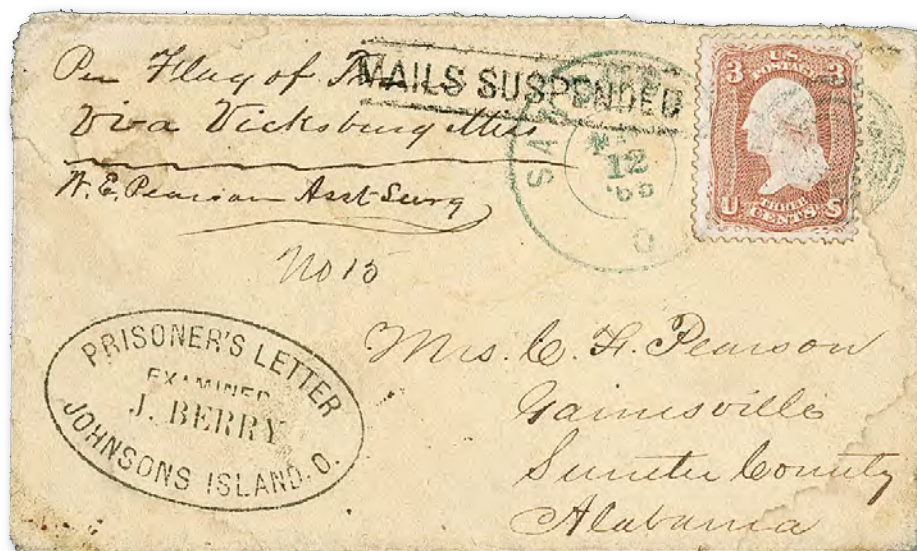 Per Flag of
MAILS SUSPENDED
Via Vicksburg Miss
W. E. Pearson Asst Surg
No 15
12
3 U.S. POSTAGE 3
THREE
U CENTS S
PRISONER'S LETTER
EXAMINED
J. BERRY
JOHNSONS ISLAND. O.
Mrs. C. F. Pearson
Gainesville
Sumter County
Alabama